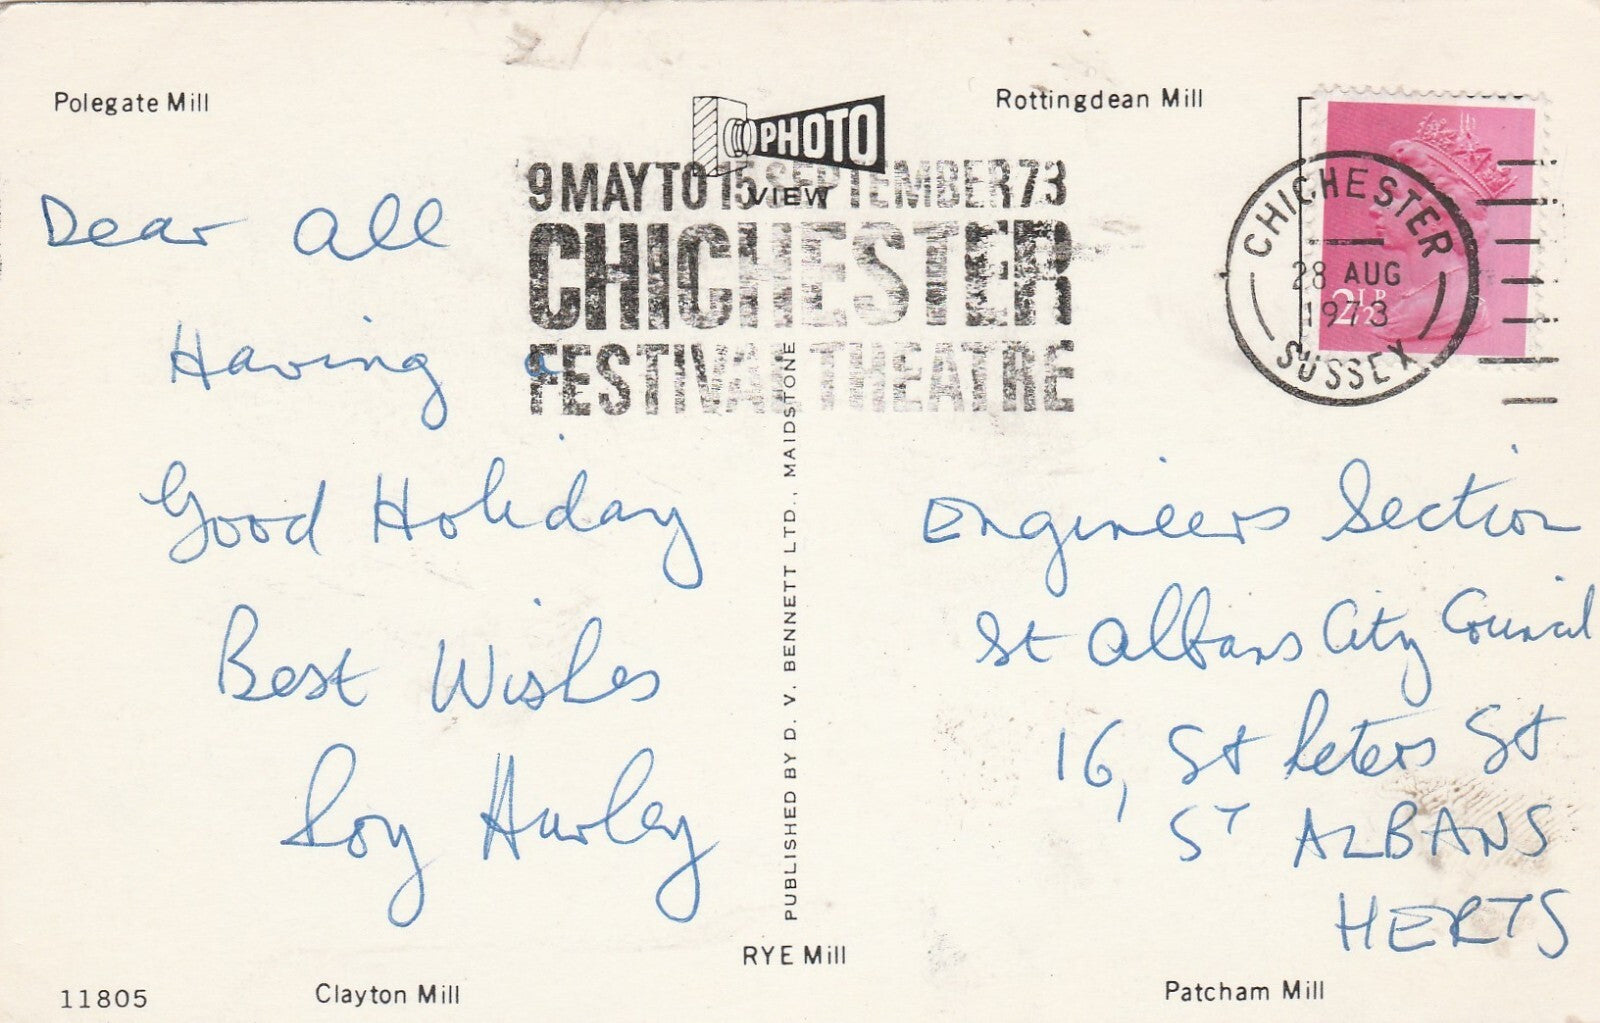 Polegate Mill
Rottingdean Mill
PHOTO
VIEW
9 MAY TO 15 SEPTEMBER 73
CHICHESTER
FESTIVAL THEATRE
CHICHESTER
28 AUG
1973
SUSSEX
2½P
Dear All
Having a
Good Holiday
Best Wishes
Roy Hurley
PUBLISHED BY D. V. BENNETT LTD., MAIDSTONE
Engineers Section
St Albans City Council
16, St Peters St
ST ALBANS
HERTS
RYE Mill
11805
Clayton Mill
Patcham Mill